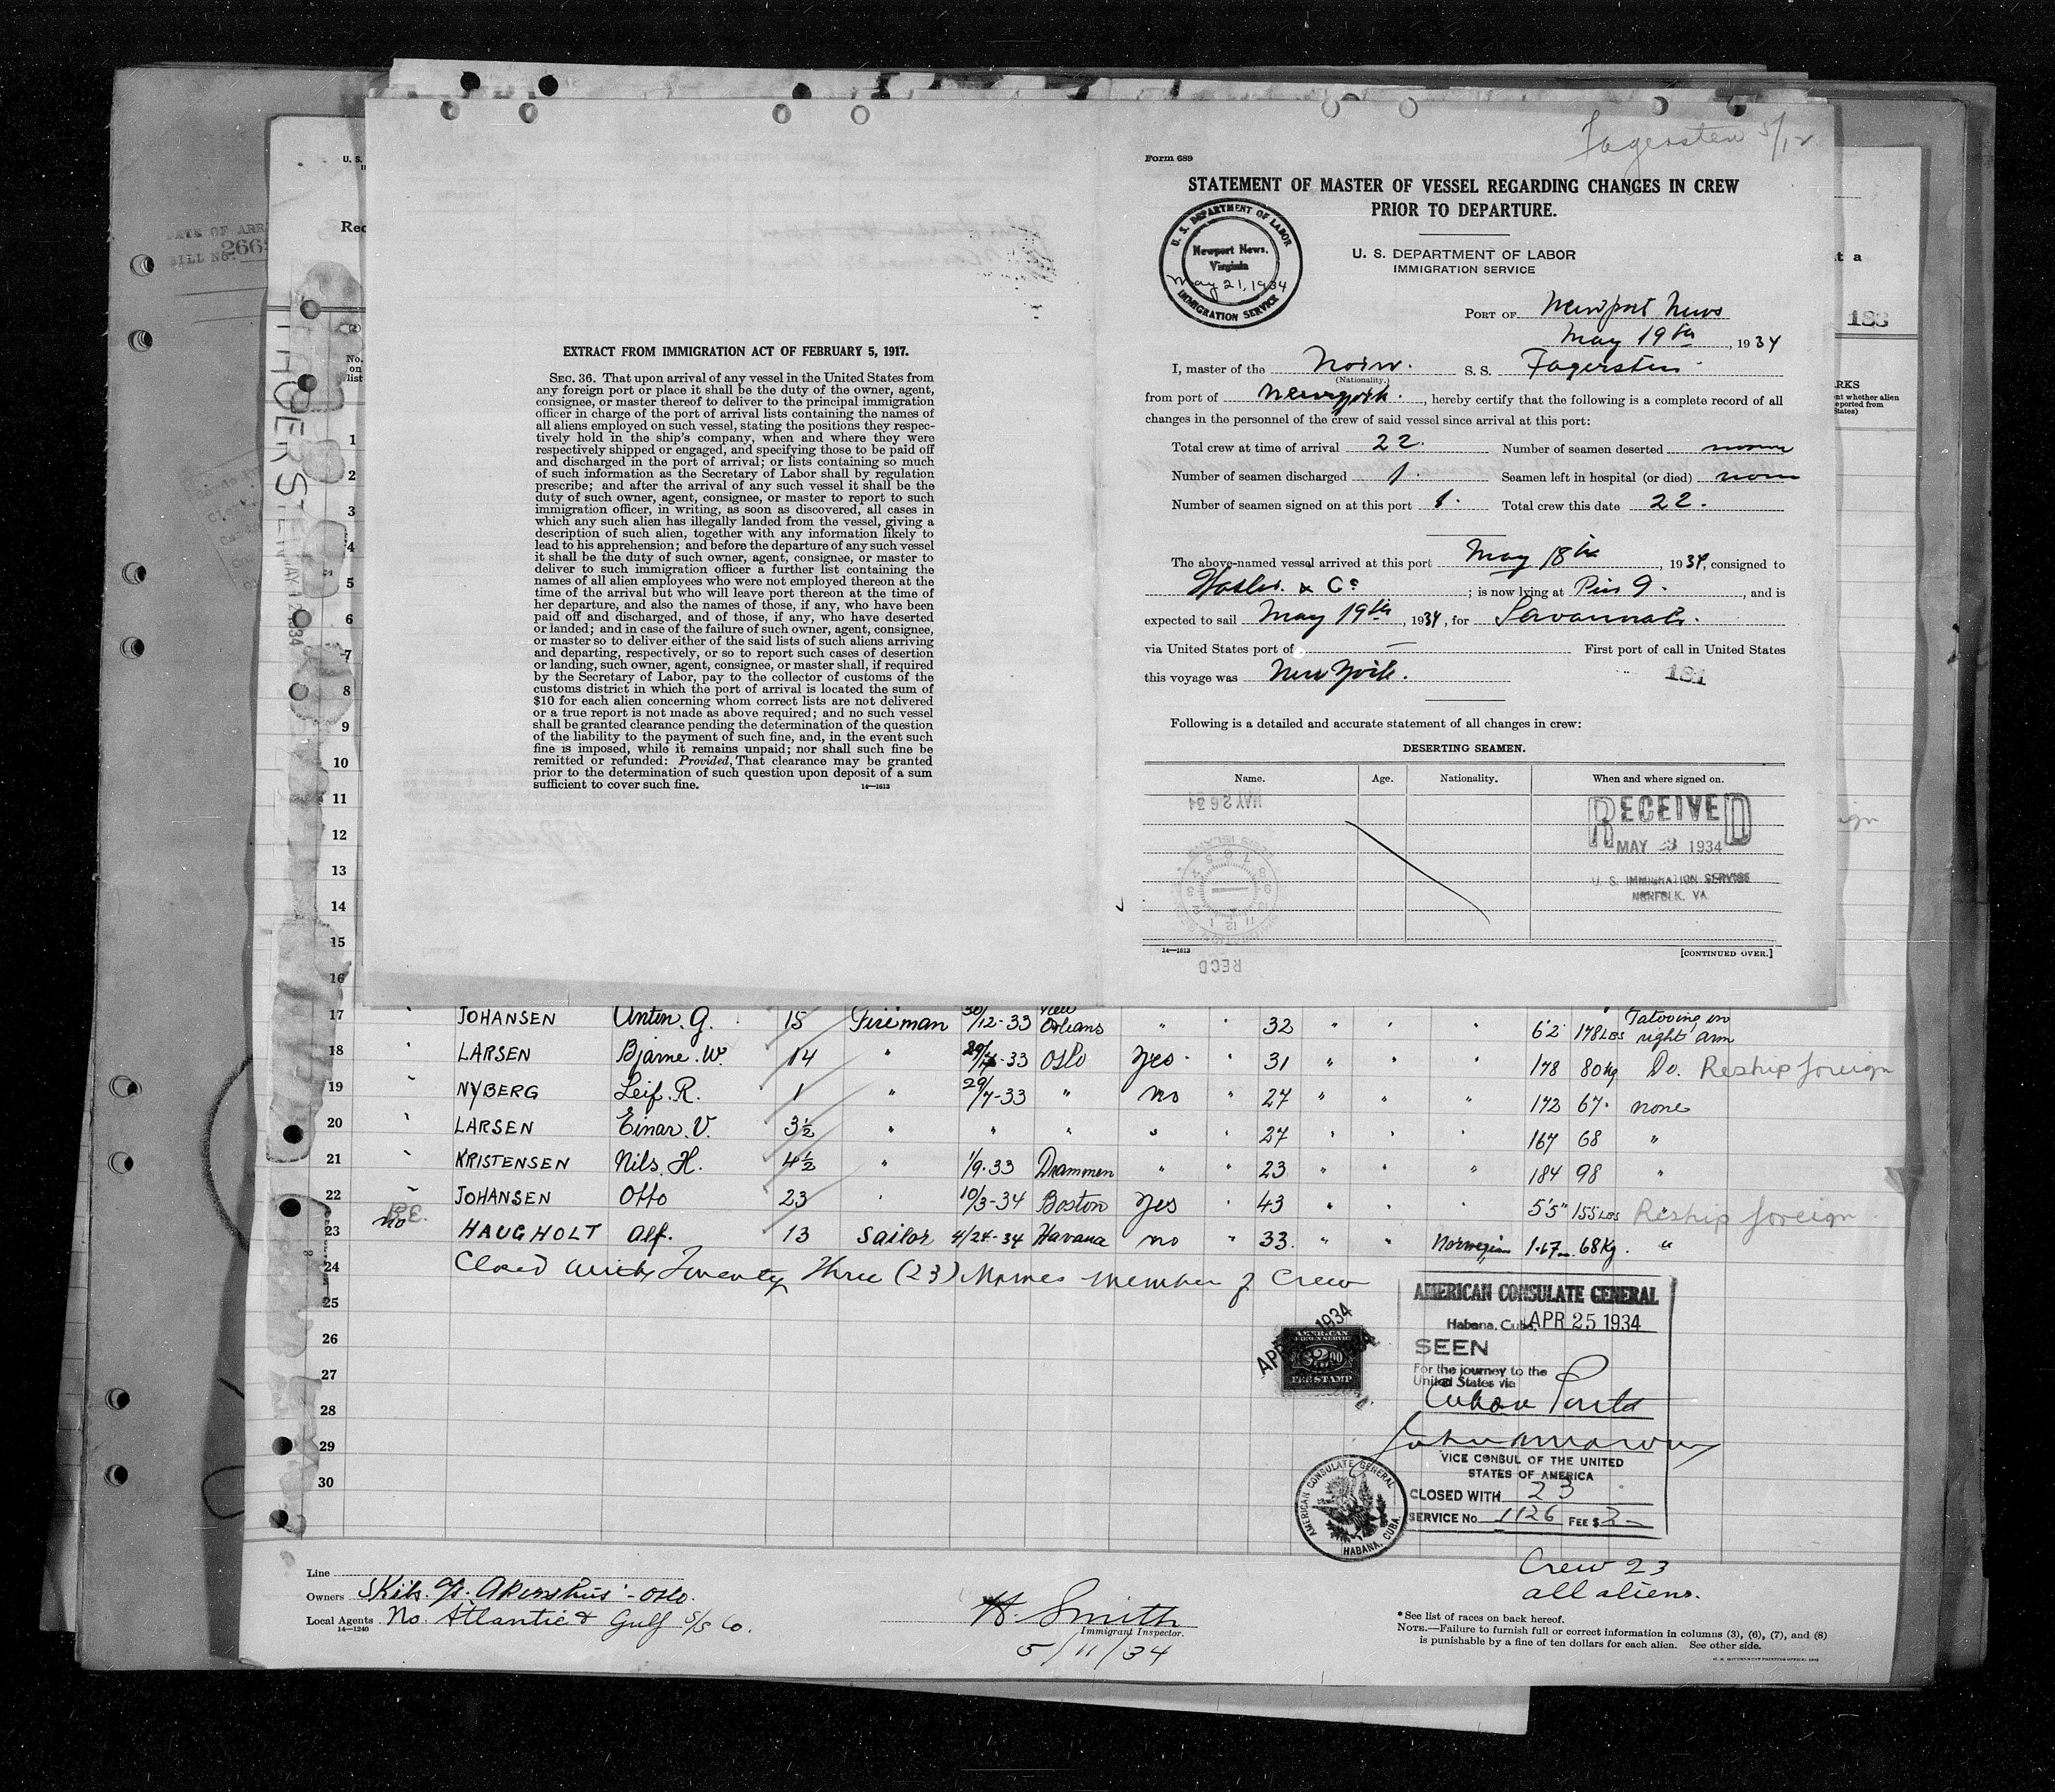 Fagersten 5/12
Form 689
STATEMENT OF MASTER OF VESSEL REGARDING CHANGES IN CREW
PRIOR TO DEPARTURE.
U. S. DEPARTMENT OF LABOR
IMMIGRATION SERVICE
U. S. DEPARTMENT OF LABOR
Newport News,
Virginia
May 21, 1934
IMMIGRATION SERVICE
PORT OF Newport News
May 19th, 1934
I, master of the Norw. S. S. Fagersten
(Nationality.)
from port of Newyork., hereby certify that the following is a complete record of all
changes in the personnel of the crew of said vessel since arrival at this port:
Total crew at time of arrival 22. Number of seamen deserted
Number of seamen discharged 1. Seamen left in hospital (or died)
Number of seamen signed on at this port 1. Total crew this date 22.
The above-named vessel arrived at this port May 18th, 1934, consigned to
& Co; is now lying at Pier 9., and is
expected to sail May 19th, 1934, for Savannah.
via United States port of — First port of call in United States
this voyage was New York. 181
Following is a detailed and accurate statement of all changes in crew:
DESERTING SEAMEN.
Name. Age. Nationality. When and where signed on.
MAY 26 34
RECEIVED
MAY 23 1934
U. S. IMMIGRATION SERVICE
NORFOLK, VA
RECD
14—1613 [CONTINUED OVER.]
EXTRACT FROM IMMIGRATION ACT OF FEBRUARY 5, 1917.
SEC. 36. That upon arrival of any vessel in the United States from
any foreign port or place it shall be the duty of the owner, agent,
consignee, or master thereof to deliver to the principal immigration
officer in charge of the port of arrival lists containing the names of
all aliens employed on such vessel, stating the positions they respec-
tively hold in the ship's company, when and where they were
respectively shipped or engaged, and specifying those to be paid off
and discharged in the port of arrival; or lists containing so much
of such information as the Secretary of Labor shall by regulation
prescribe; and after the arrival of any such vessel it shall be the
duty of such owner, agent, consignee, or master to report to such
immigration officer, in writing, as soon as discovered, all cases in
which any such alien has illegally landed from the vessel, giving a
description of such alien, together with any information likely to
lead to his apprehension; and before the departure of any such vessel
it shall be the duty of such owner, agent, consignee, or master to
deliver to such immigration officer a further list containing the
names of all alien employees who were not employed thereon at the
time of the arrival but who will leave port thereon at the time of
her departure, and also the names of those, if any, who have been
paid off and discharged, and of those, if any, who have deserted
or landed; and in case of the failure of such owner, agent, consignee,
or master so to deliver either of the said lists of such aliens arriving
and departing, respectively, or so to report such cases of desertion
or landing, such owner, agent, consignee, or master shall, if required
by the Secretary of Labor, pay to the collector of customs of the
customs district in which the port of arrival is located the sum of
$10 for each alien concerning whom correct lists are not delivered
or a true report is not made as above required; and no such vessel
shall be granted clearance pending the determination of the question
of the liability to the payment of such fine, and, in the event such
fine is imposed, while it remains unpaid; nor shall such fine be
remitted or refunded: Provided, That clearance may be granted
prior to the determination of such question upon deposit of a sum
sufficient to cover such fine. 14—1613
183
DATE OF ARR
BILL No. 266
U. S.
Rec
No.
on
list
1
2
3
4
5
6
7
8
9
10
11
12
13
14
15
16
17 " JOHANSEN Anton. G. 15 Fireman 30/12-33 New Orleans " " 32 " " " 6'2" 178 LBS Tatooing on right arm
18 " LARSEN Bjarne. W. 14 " 29/7-33 Oslo Yes " 31 " " " 178 80kg Do. Reship foreign
19 " NYBERG Leif. R. 1 " 29/7-33 " no " 27 " " " 172 67 none
20 " LARSEN Einar. V. 3½ " " " " " 27 " " " 167 68 "
21 " KRISTENSEN Nils. H. 4½ " 1/9-33 Drammen " " 23 " " " 184 98 "
22 " JOHANSEN Otto 23 " 10/3-34 Boston Yes " 43 " " " 5'5" 155 LBS " Reship foreign
23 no HAUGHOLT Alf. 13 Sailor 4/24-34 Havana no " 33. " " Norwegian 1.67m. 68Kg. "
24 Closed with Twenty Three (23) Names member of Crew
25
26
27
28
29
30
AMERICAN CONSULATE GENERAL
Habana, Cuba, APR 25 1934
SEEN
For the journey to the
United States via
Cuban Ports
VICE CONSUL OF THE UNITED
STATES OF AMERICA
CLOSED WITH 23
SERVICE No. 1126 FEE $2-
AMERICAN
$2.00
FEE STAMP
AMERICAN CONSULATE GENERAL
HABANA, CUBA.
Crew 23
all aliens.
Line
Owners Skibs. A/S. Akershus - Oslo.
Local Agents No. Atlantic & Gulf S/S Co.
14—1240
H. Smith
Immigrant Inspector.
5/11/34
*See list of races on back hereof.
NOTE.—Failure to furnish full or correct information in columns (3), (6), (7), and (8)
is punishable by a fine of ten dollars for each alien. See other side.